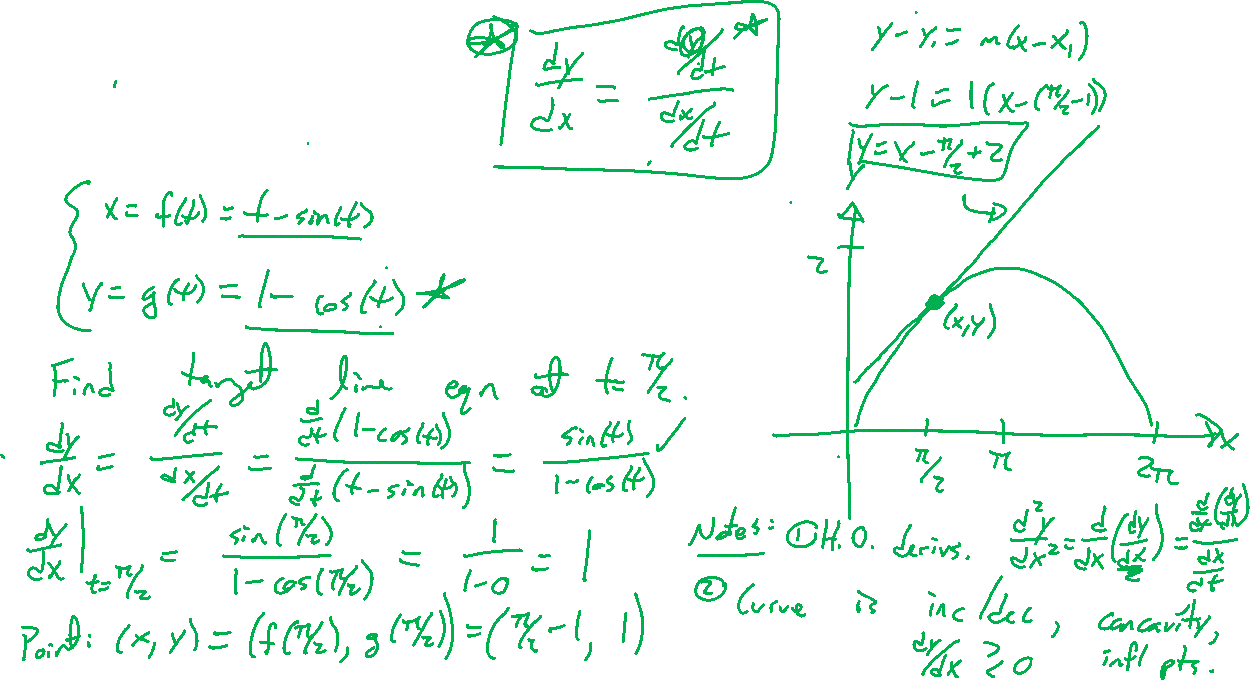 dy/dx = (dy/dt)/(dx/dt)
y-y₁ = m(x-x₁)
y-1 = 1(x-(π/2-1))
y = x-π/2+2
x = f(t) = t-sin(t)
y = g(t) = 1-cos(t)
Find tangent line eqn at t=π/2.
dy/dx = (dy/dt)/(dx/dt) = (d/dt(1-cos(t)))/(d/dt(t-sin(t))) = sin(t)/(1-cos(t)) ✓
dy/dx|t=π/2 = sin(π/2)/(1-cos(π/2)) = 1/(1-0) = 1
Point: (x,y) = (f(π/2), g(π/2)) = (π/2-1, 1)
2
(x,y)
π/2 π 2π x
Notes: ① H.O. derivs. d²y/dx² = d/dx(dy/dx) = (d/dt(dy/dx))/(dx/dt)
② Curve is inc/dec, concavity,
dy/dx ≥ 0 infl pts.